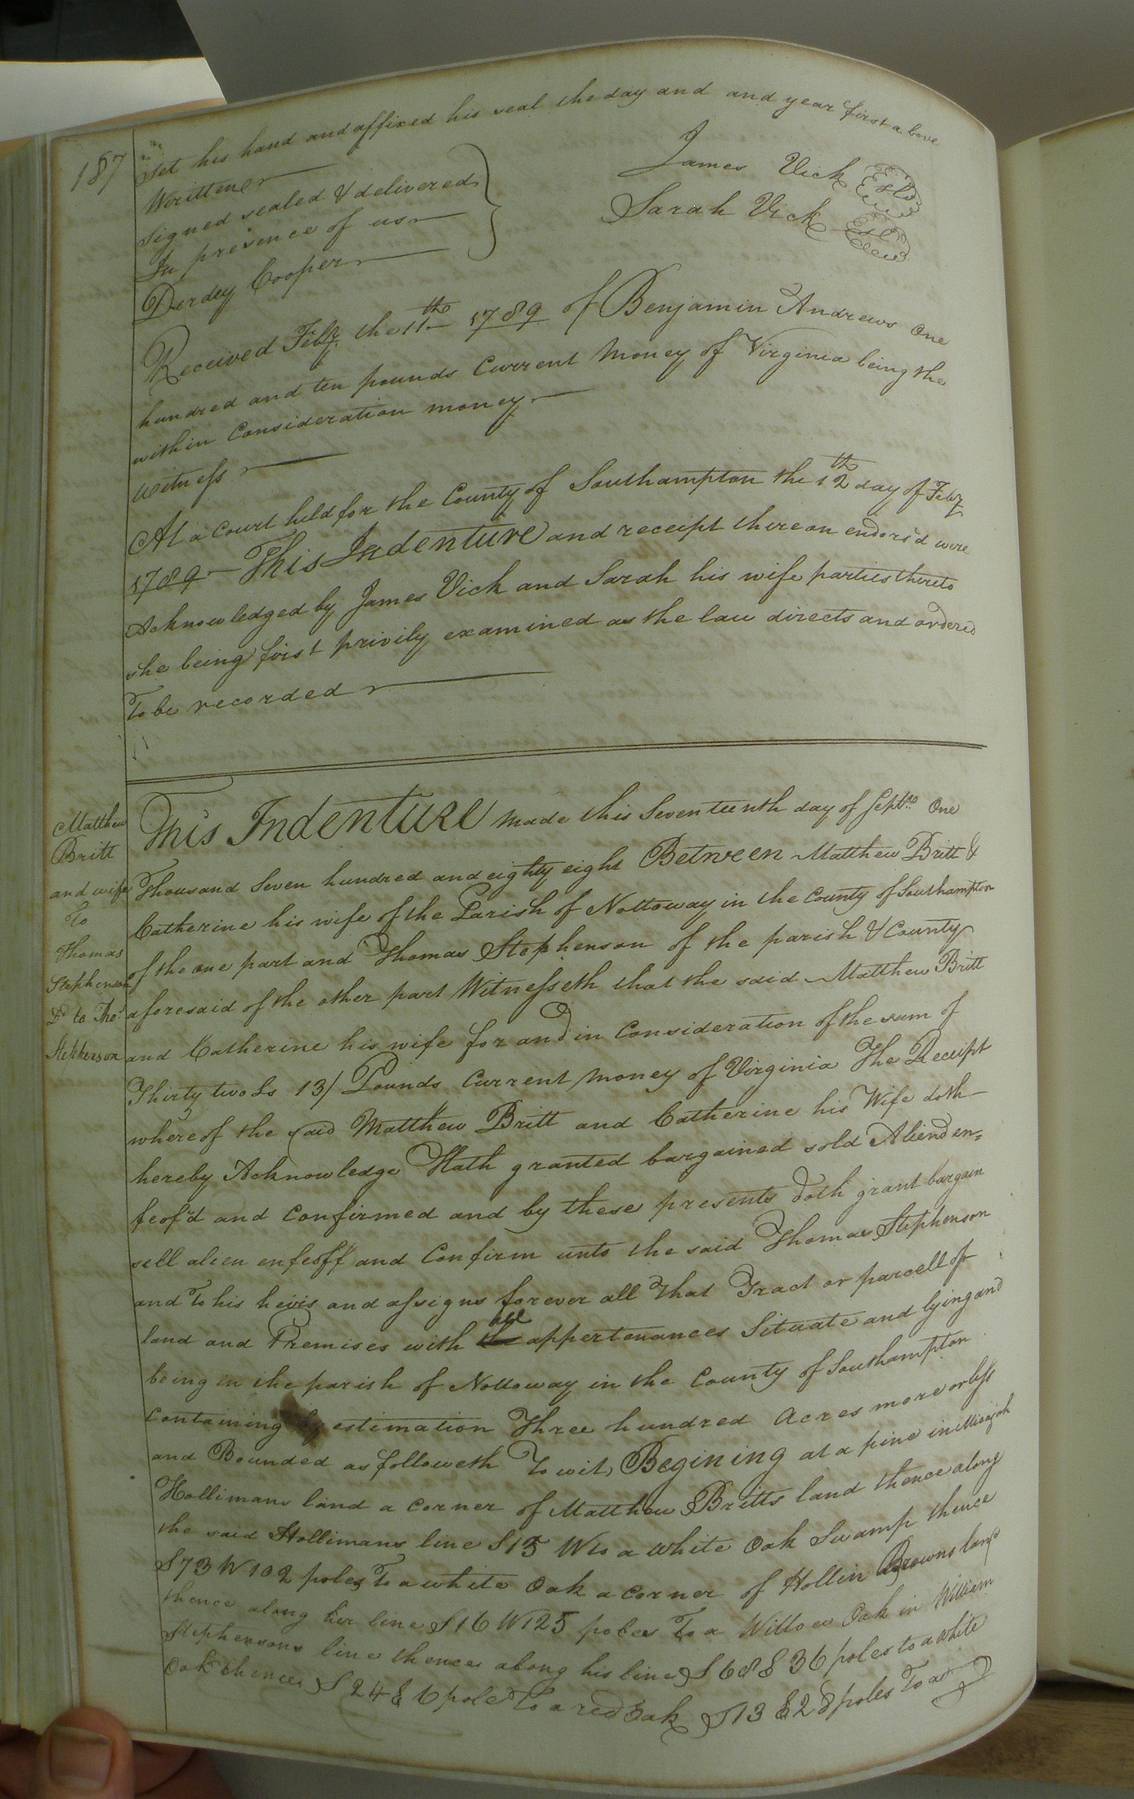 187
set his hand and affixed his seal the day and and year first above
Written
James Vick
Signed sealed & delivered
Sarah Vick
In presence of us
Dordey Cooper
Received Feby. the 11th 1789 of Benjamin Andrews One
hundred and ten pounds Current Money of Virginia being the
within Consideration money
Witness
At a Court held for the County of Southampton the 12th day of Feby
1789 - This Indenture and receipt thereon endors'd were
Acknowledged by James Vick and Sarah his wife parties thereto
she being first privily examined as the law directs and ordered
To be recorded
Matthew
Britt
and wife
To
Thomas
Stephenson
Dd to Thos.
Stephenson
This Indenture made this Seventeenth day of Septr. One
Thousand Seven hundred and eighty eight Between Matthew Britt &
Catherine his wife of the Parish of Nottoway in the County of Southampton
of the one part and Thomas Stephenson of the parish & County
aforesaid of the other part Witnesseth that the said Matthew Britt
and Catherine his wife for and in Consideration of the sum of
Thirty two Ls 13/ Pounds Current money of Virginia The Receipt
whereof the said Matthew Britt and Catherine his Wife doth
hereby Acknowledge Hath granted bargained sold Aliend en=
feof'd and Confirmed and by these presents doth grant bargain
sell alien enfeoff and Confirm unto the said Thomas Stephenson
and To his heirs and assigns forever all That Tract or parcell of
land and Premises with all appertenances Situate and lying and
being in the parish of Nottoway in the County of Southampton
Containing by estimation Three hundred Acres more or less
and Bounded as followeth To wit, Begining at a pine in
Hollimans land a Corner of Matthew Britts land thence along
the said Hollimans line S 15 W to a white Oak Swamp thence
S 73 W 102 poles To a white Oak a corner of Hollin Browns land
thence along her line S 16 W 125 poles To a Willow Oak in William
Stephensons line thence along his line S 68 E 36 poles to a white
Oak thence S 24 E 6 pole To a red Oak S 13 E 28 poles To a